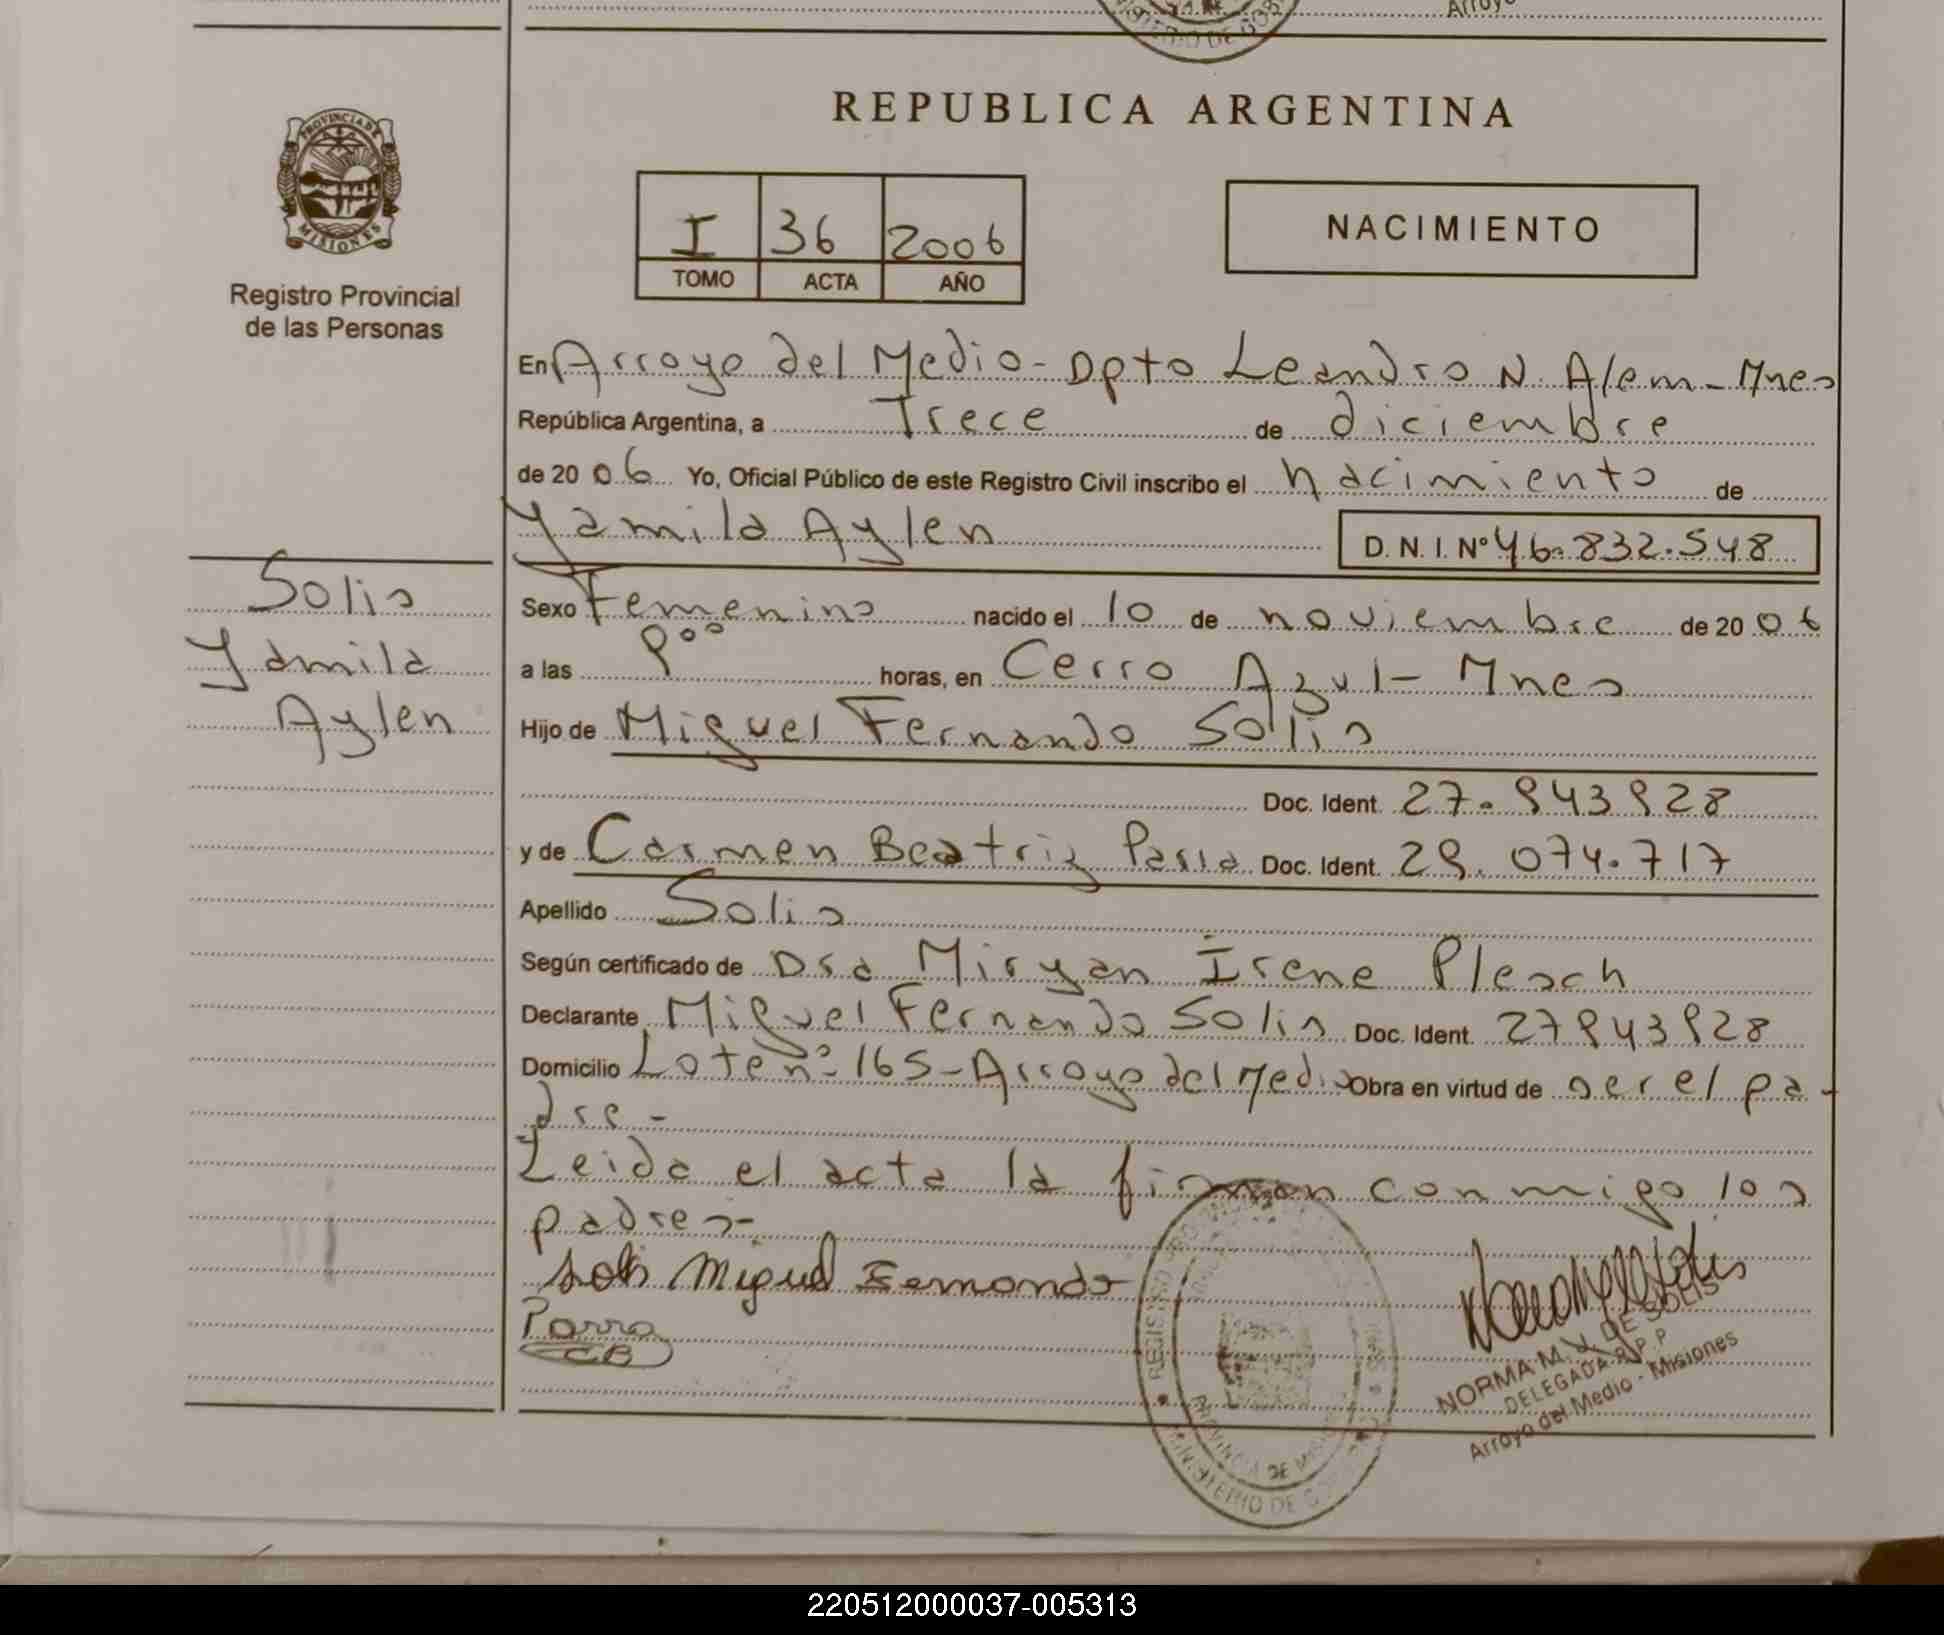 Arroyo
MINISTERIO DE GOB
REPUBLICA ARGENTINA
PROVINCIA DE
MISIONES
Registro Provincial
de las Personas
I 36 2006
TOMO ACTA AÑO
NACIMIENTO
En Arroyo del Medio - Dpto Leandro N. Alem - Mnes
República Argentina, a Trece de diciembre
de 2006 Yo, Oficial Público de este Registro Civil inscribo el nacimiento de
Yamila Aylen D.N.I. Nº 46.832.548
Solis
Yamila
Aylen
Sexo Femenino nacido el 10 de noviembre de 2006
a las horas, en Cerro Azul - Mnes
Hijo de Miguel Fernando Solis
Doc. Ident.
y de Carmen Beatriz Parra Doc. Ident. 29.074.717
Apellido Solis
Según certificado de Dra Miryan Irene Plesch
Declarante Miguel Fernando Solis Doc. Ident.
Domicilio Lote nº 165 - Arroyo del Medio Obra en virtud de ser el pa-
dre -
Leida el acta la firman conmigo los
padres -
Solis Miguel Fernando
Parra
CB
NORMA M. DE SOLIS
DELEGADA R.P.P
Arroyo del Medio - Misiones
PROVINCIA DE MISIONES
MINISTERIO DE GOBIERNO
220512000037-005313